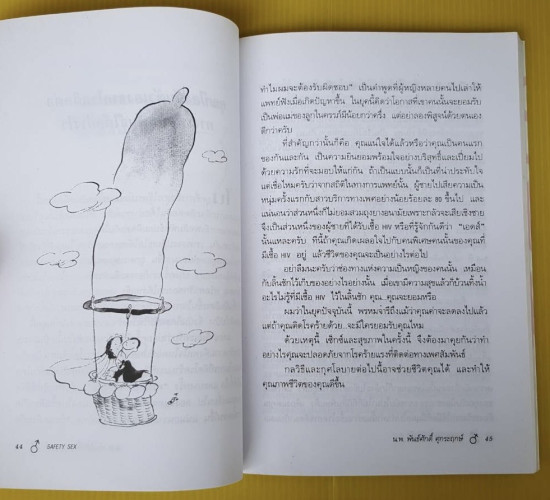 44 ♂ SAFETY SEX
ทำไมผมจะต้องรับผิดชอบ" เป็นคำพูดที่ผู้หญิงหลายคนไปเล่าให้
แพทย์ฟังเมื่อเกิดปัญหาขึ้น ในยุคนี้คิดว่าโอกาสที่เขาคนนั้นจะยอมรับ
เป็นพ่อแม่ของลูกในครรภ์มีน้อยกว่าครึ่ง แต่อย่าลองพิสูจน์ด้วยตนเอง
ดีกว่าครับ
ที่สำคัญกว่านั้นก็คือ คุณแน่ใจได้แล้วหรือว่าคุณเป็นคนแรก
ของกันและกัน เป็นความยินยอมพร้อมใจอย่างบริสุทธิ์และเปี่ยมไป
ด้วยความรักที่จะมอบให้แก่กัน ถ้าเป็นแบบนั้นก็เป็นที่น่าประทับใจ
แต่เชื่อไหมครับว่าจากสถิติในทางการแพทย์นั้น ผู้ชายไปเสียความเป็น
หนุ่มครั้งแรกกับสาวบริการทางเพศอย่างน้อยร้อยละ 80 ขึ้นไป และ
แน่นอนว่าส่วนหนึ่งก็ไม่ยอมสวมถุงยางอนามัยเพราะกลัวจะเสียเชิงชาย
จึงเป็นส่วนหนึ่งของผู้ชายที่ได้รับเชื้อ HIV หรือที่รู้จักกันดีว่า "เอดส์"
นั่นแหละครับ ทีนี้ถ้าคุณเกิดเผลอใจไปกับคนพิเศษคนนั้นของคุณที่
มีเชื้อ HIV อยู่ แล้วชีวิตของคุณจะเป็นอย่างไรต่อไป
อย่าลืมนะครับว่าช่องทางแห่งความเป็นหญิงของคนนั้น เหมือน
กับลิ้นชักไว้เก็บของอย่างไรอย่างนั้น เมื่อเขามีความสุขแล้วก็บ้วนทิ้งน้ำ
อะไรไม่รู้ที่มีเชื้อ HIV ไว้ในลิ้นชัก คุณ...คุณจะยอมหรือ
ผมว่าในยุคปัจจุบันนี้ พรหมจารีถึงแม้ว่าคุณค่าจะลดลงไปแล้ว
แต่ถ้าคุณติดโรคร้ายด้วย..จะมีใครยอมรับคุณไหม
ด้วยเหตุนี้ เซ็กซ์และสุขภาพในครั้งนี้ จึงต้องมาคุยกันว่าทำ
อย่างไรคุณจะปลอดภัยจากโรคร้ายแรงที่ติดต่อทางเพศสัมพันธ์
กลวิธีและกุศโลบายต่อไปนี้อาจช่วยชีวิตคุณได้ และทำให้
คุณภาพชีวิตของคุณดีขึ้น
น.พ. พันธ์ศักดิ์ ศุกระฤกษ์ ♂ 45